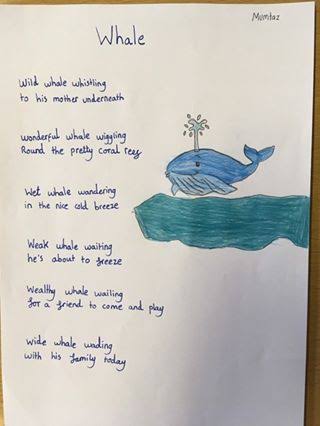 Mumtaz
Whale
Wild whale whistling
to his mother underneath
Wonderful whale wiggling
Round the pretty coral reef
Wet whale wandering
in the nice cold breeze
Weak whale waiting
he's about to freeze
Wealthy whale wailing
for a friend to come and play
Wide whale wading
with his family today